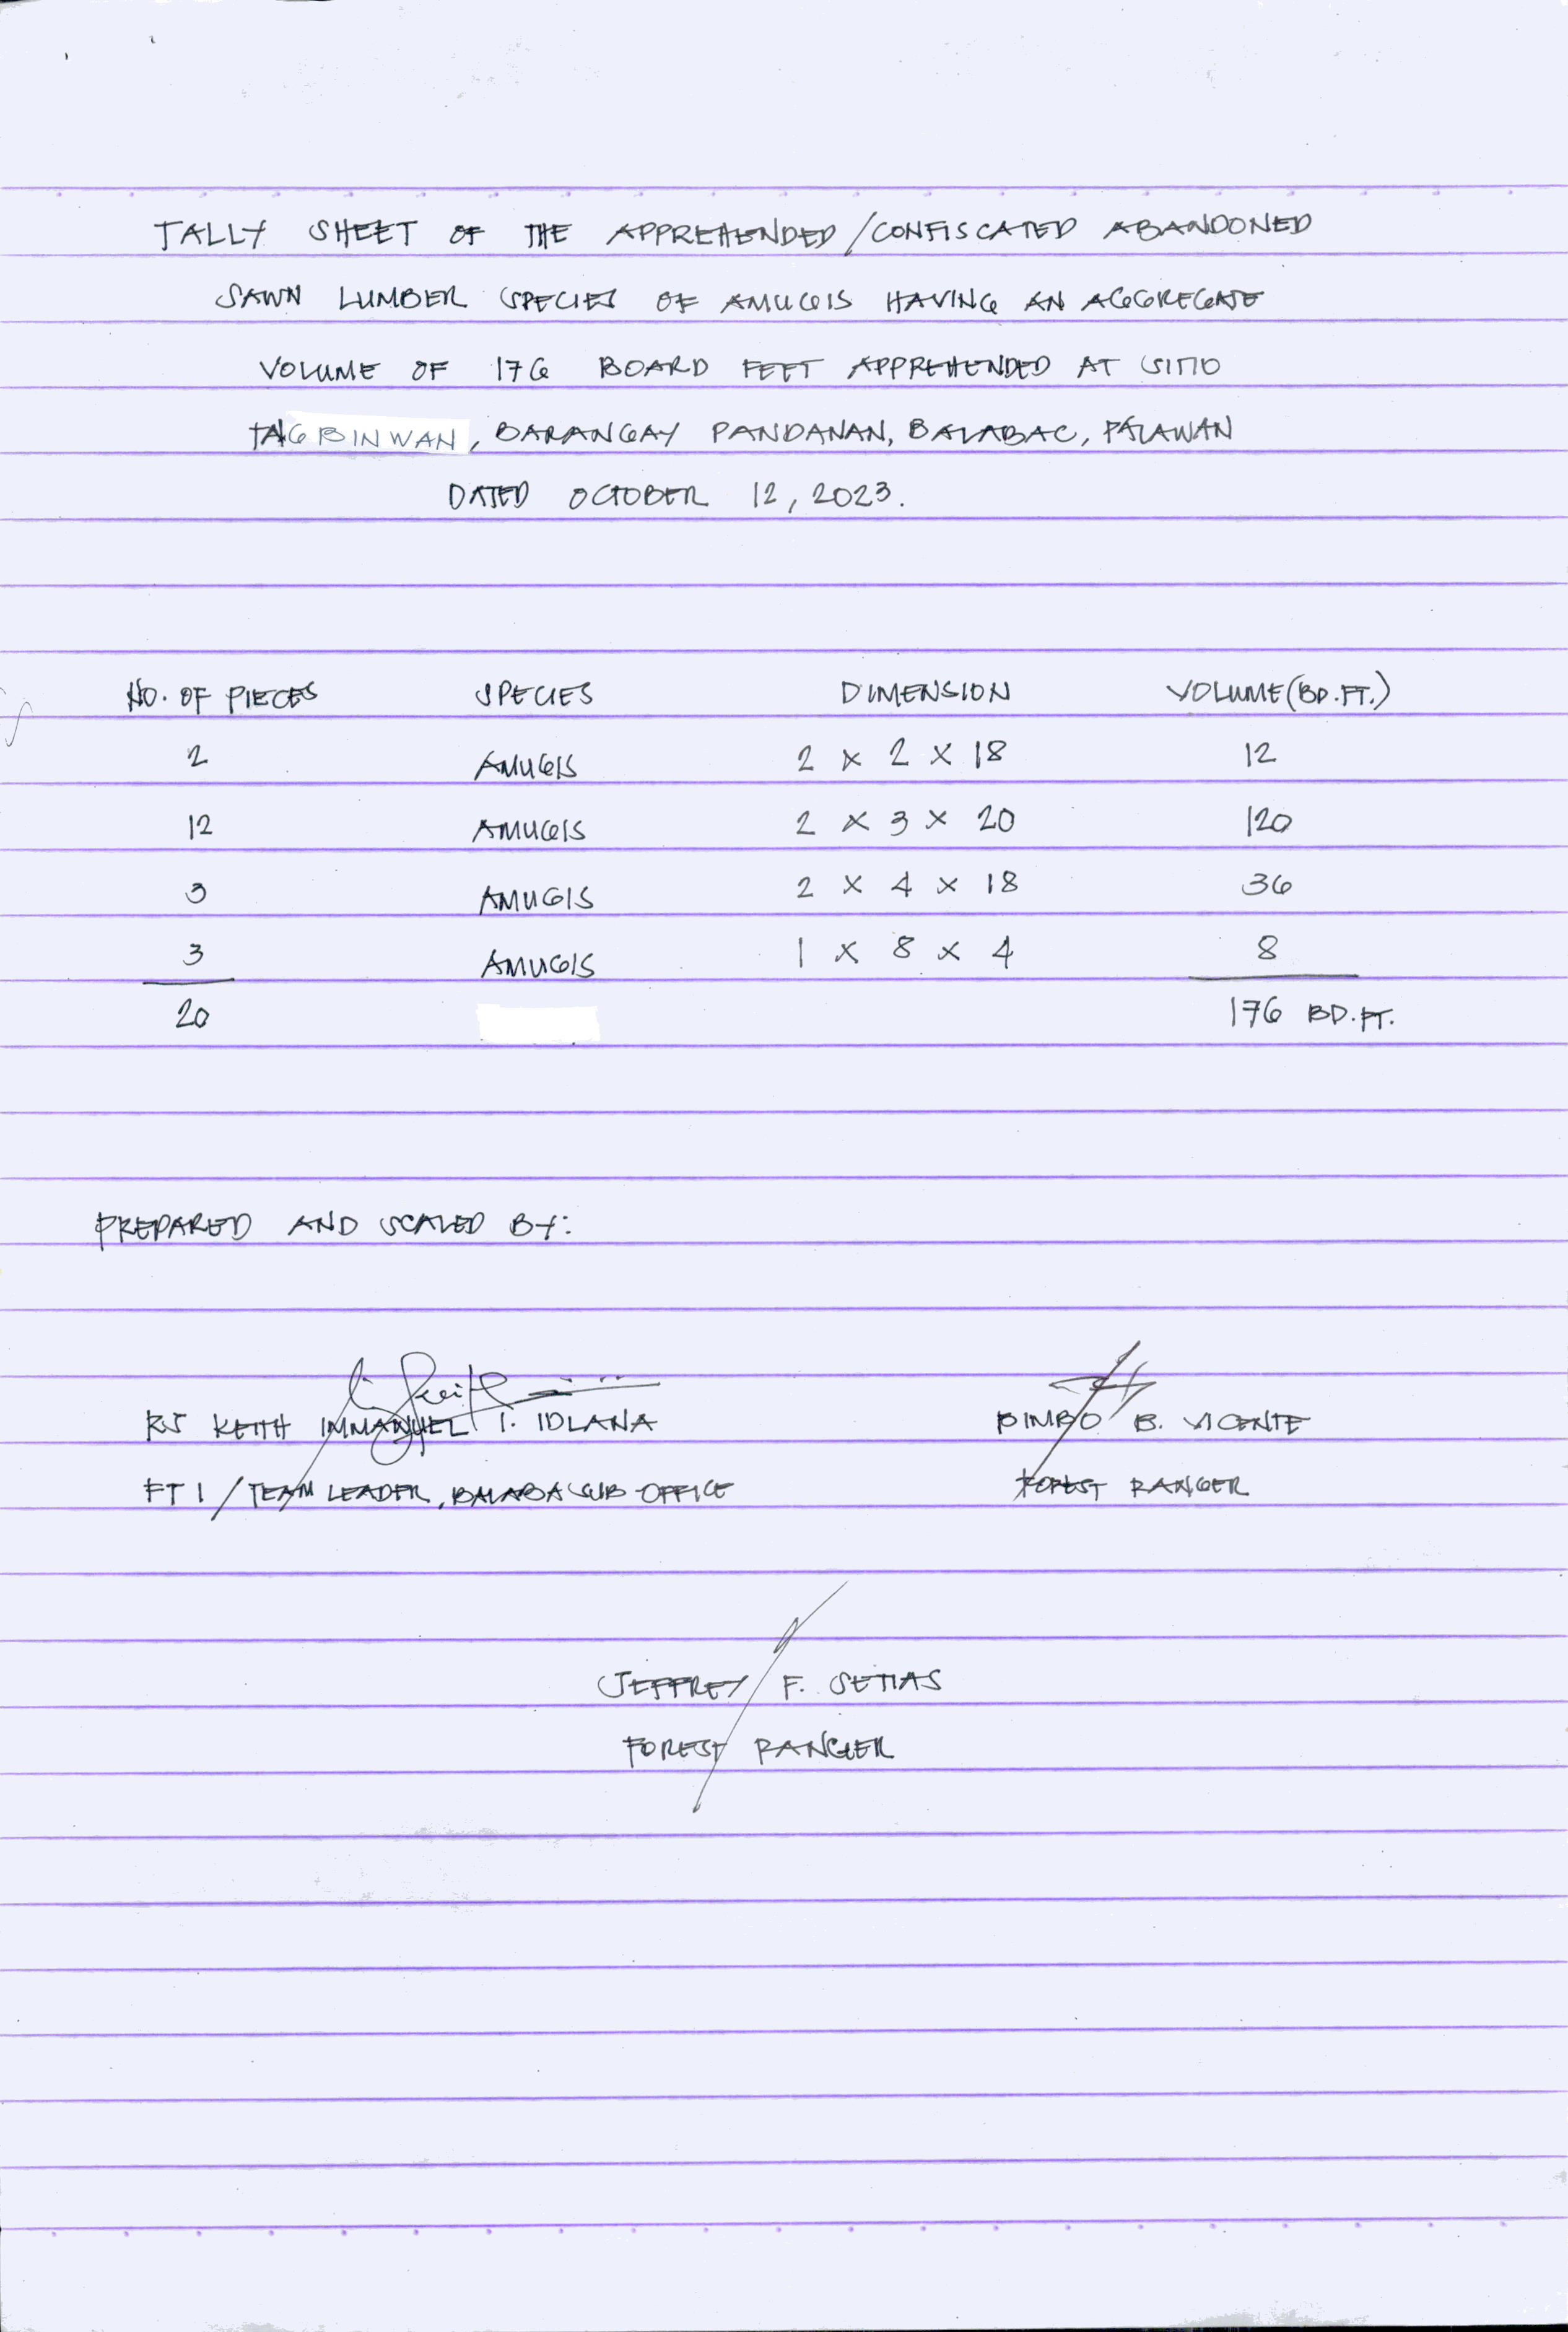 TALLY SHEET OF THE APPREHENDED/CONFISCATED ABANDONED
SAWN LUMBER SPECIES OF AMUGIS HAVING AN AGGREGATE
VOLUME OF 176 BOARD FEET APPREHENDED AT SITIO
TAGBINWAN, BARANGAY PANDANAN, BALABAC, PALAWAN
DATED OCTOBER 12, 2023.
NO. OF PIECES SPECIES DIMENSION VOLUME (BD.FT.)
2 AMUGIS 2 x 2 x 18 12
12 AMUGIS 2 x 3 x 20 120
3 AMUGIS 2 x 4 x 18 36
3 AMUGIS 1 x 8 x 4 8
20 176 BD.FT.
PREPARED AND SCALED BY:
RJ KEITH IMMANUEL I. IDLANA BIMBO B. VICENTE
FT 1 / TEAM LEADER, BALABAC SUB OFFICE FOREST RANGER
JEFFREY F. SETIAS
FOREST RANGER